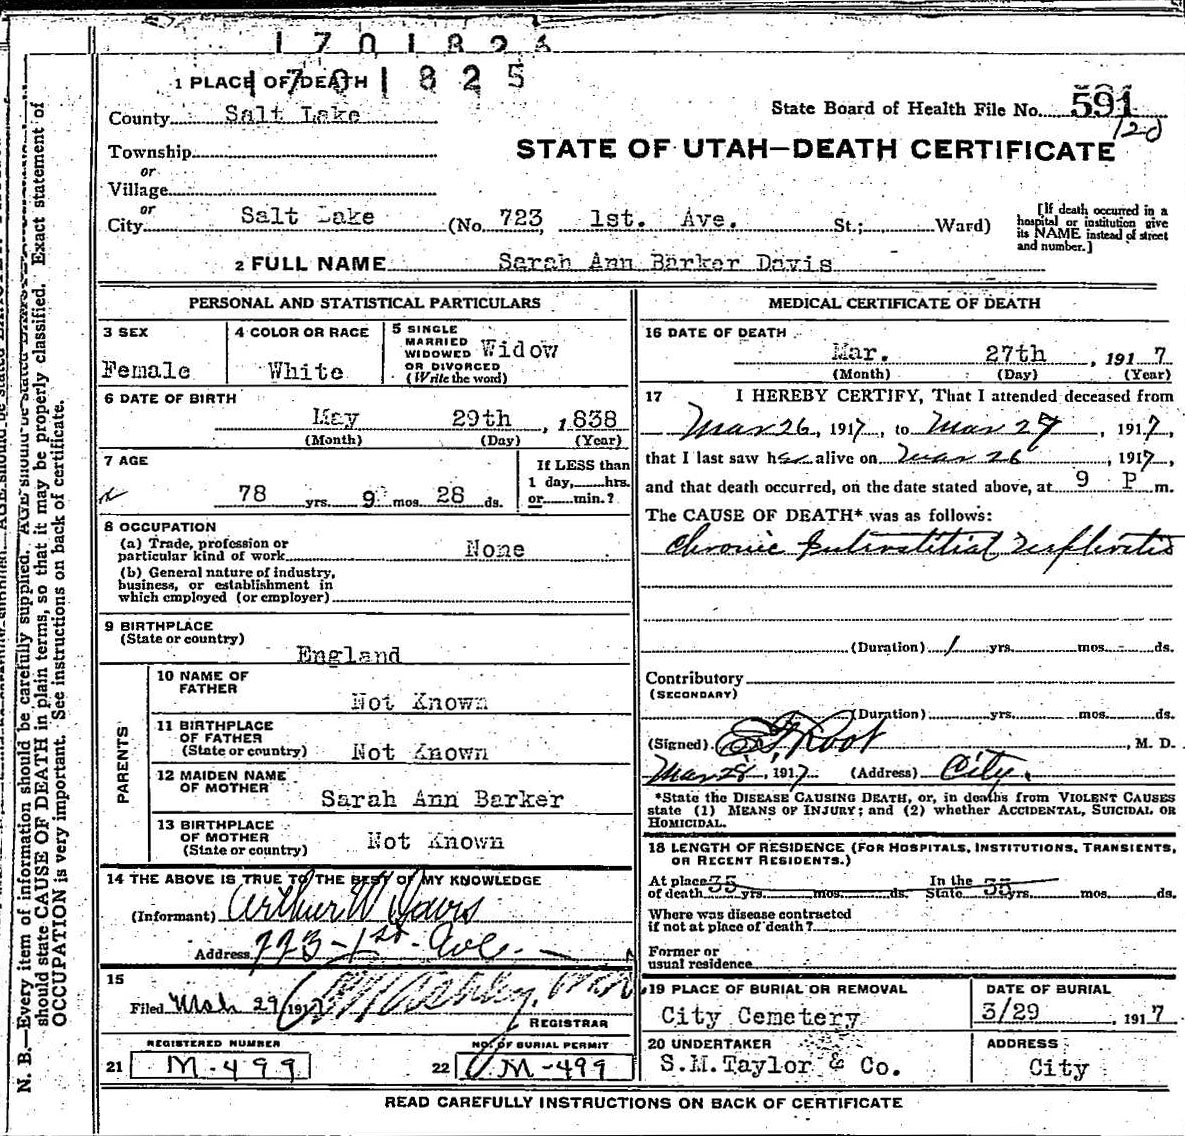 1701824
1701825
1 PLACE OF DEATH
County Salt Lake
State Board of Health File No. 591
120
Township
or
Village
or
STATE OF UTAH—DEATH CERTIFICATE
City Salt Lake (No. 723, 1st. Ave. St.; Ward)
[If death occurred in a
hospital or institution give
its NAME instead of street
and number.]
2 FULL NAME Sarah Ann Barker Davis
PERSONAL AND STATISTICAL PARTICULARS
3 SEX
Female
4 COLOR OR RACE
White
5 SINGLE
MARRIED
WIDOWED
OR DIVORCED
(Write the word)
Widow
6 DATE OF BIRTH
May 29th, 1838
(Month) (Day) (Year)
7 AGE
78 yrs. 9 mos. 28 ds.
If LESS than
1 day, hrs.
or min.?
8 OCCUPATION
(a) Trade, profession or
particular kind of work None
(b) General nature of industry,
business, or establishment in
which employed (or employer)
9 BIRTHPLACE
(State or country)
England
PARENTS
10 NAME OF
FATHER
Not Known
11 BIRTHPLACE
OF FATHER
(State or country) Not Known
12 MAIDEN NAME
OF MOTHER
Sarah Ann Barker
13 BIRTHPLACE
OF MOTHER
(State or country) Not Known
14 THE ABOVE IS TRUE TO THE BEST OF MY KNOWLEDGE
(Informant) Arthur W Davis
Address 723-1st Ave.
15
Filed Mch 29 1917
REGISTRAR
REGISTERED NUMBER
21 M-499
NO. OF BURIAL PERMIT
22 M-499
MEDICAL CERTIFICATE OF DEATH
16 DATE OF DEATH
Mar. 27th, 1917
(Month) (Day) (Year)
17 I HEREBY CERTIFY, That I attended deceased from
Mar 26, 1917, to Mar 27, 1917,
that I last saw her alive on Mar 26, 1917,
and that death occurred, on the date stated above, at 9 P m.
The CAUSE OF DEATH* was as follows:
Chronic Interstitial Nephritis
(Duration) 1 yrs. mos. ds.
Contributory
(SECONDARY)
(Duration) yrs. mos. ds.
(Signed) Root, M. D.
Mar 28, 1917 (Address) City.
*State the DISEASE CAUSING DEATH, or, in deaths from VIOLENT CAUSES
state (1) MEANS OF INJURY; and (2) whether ACCIDENTAL, SUICIDAL OR
HOMICIDAL.
18 LENGTH OF RESIDENCE (FOR HOSPITALS, INSTITUTIONS, TRANSIENTS,
OR RECENT RESIDENTS.)
At place In the
of death 35 yrs. mos. ds. State 35 yrs. mos. ds.
Where was disease contracted
if not at place of death?
Former or
usual residence
19 PLACE OF BURIAL OR REMOVAL
City Cemetery
DATE OF BURIAL
3/29, 1917
20 UNDERTAKER
S.M.Taylor & Co.
ADDRESS
City
READ CAREFULLY INSTRUCTIONS ON BACK OF CERTIFICATE
N. B.—Every item of information should be carefully supplied. AGE should be stated
should state CAUSE OF DEATH in plain terms, so that it may be properly classified. Exact statement of
OCCUPATION is very important. See instructions on back of certificate.